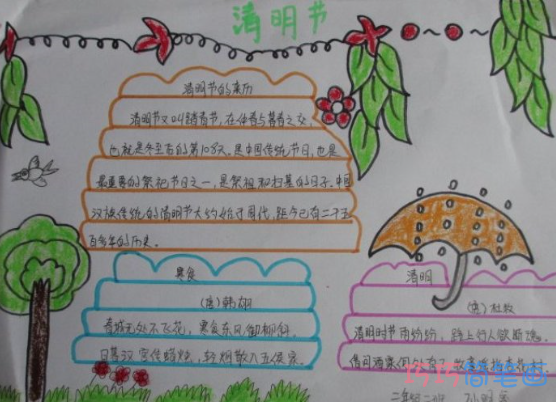 清明节
清明节的来历
清明节又叫踏青节,在仲春与暮春之交,
也就是冬至后的第108天。是中国传统节日,也是
最重要的祭祀节日之一,是祭祖和扫墓的日子。中国
汉族传统的清明节大约始于周代,距今已有二千五
百多年的历史。
寒食
(唐)韩翃
春城无处不飞花,寒食东风御柳斜。
日暮汉宫传蜡烛,轻烟散入五侯家。
清明
(唐)杜牧
清明时节雨纷纷,路上行人欲断魂。
借问酒家何处有?牧童遥指杏花村
二年级二班
巧巧简笔画